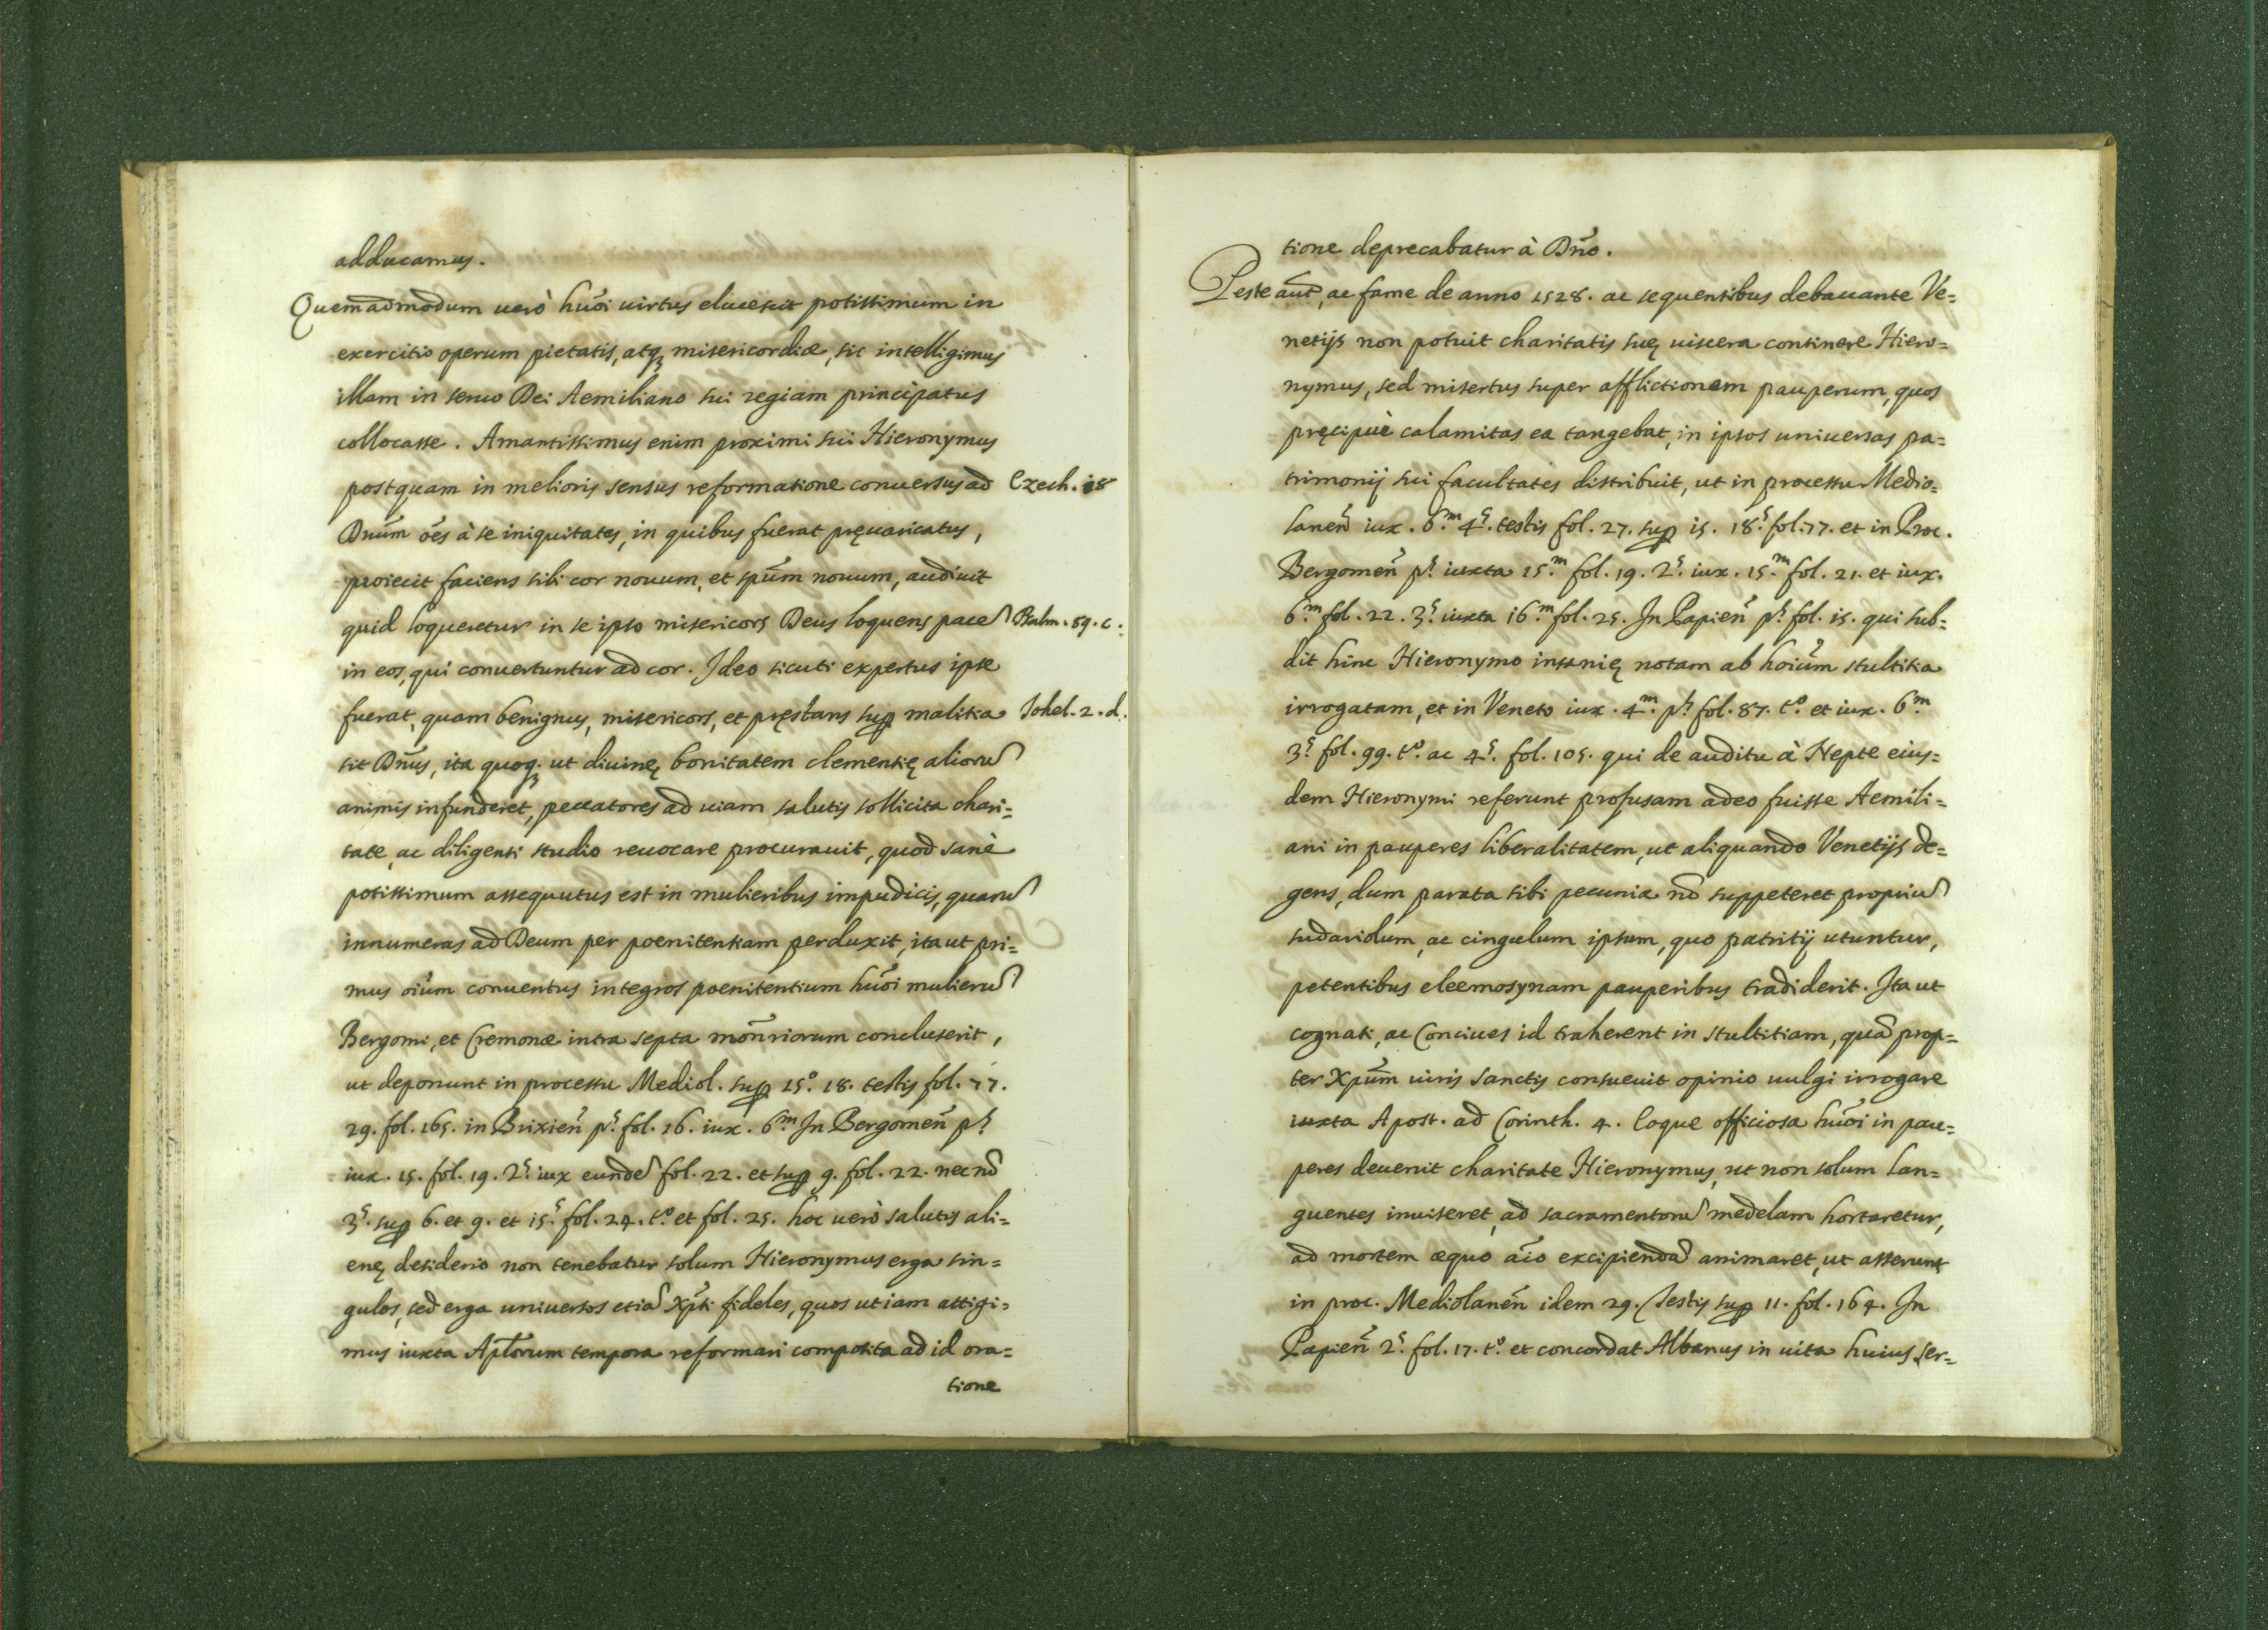 adducamus.
Quemadmodum uerò hũoi uirtus elucescit potissimum in
exercitio operum pietatis, atq; misericordiæ, sic intelligimus
illam in seruo Dei Aemiliano sui regiam principatus
collocasse. Amantissimus enim proximi sui Hieronymus
postquam in melioris sensus reformatione conuersus ad Ezech. 18
Dnũm oẽs à se iniquitates, in quibus fuerat pręuaricatus,
proiecit faciens sibi cor nouum, et spũm nouum, audiuit
quid loqueretur in se ipso misericors Deus loquens pacẽ Psalm. 89. c.
in eos, qui conuertuntur ad cor. Ideo sicuti expertus ipse
fuerat, quam benignus, misericors, et pręstans sup malitia Johel. 2. d.
sit Dñus, ita quoq; ut diuinę bonitatem clementię aliorũ
animis infunderet, peccatores ad uiam salutis sollicita chari=
tate, ac diligenti studio reuocare procurauit, quod sanè
potissimum assequutus est in mulieribus impudicis, quarũ
innumeras ad Deum per poenitentiam perduxit, ita ut pri=
mus oiũm conuentus integros poenitentium hũoi mulierũ
Bergomi, et Cremonæ intra septa monr̃iorum concluserit,
ut deponunt in processu Mediol. sup 15.º 18. testis fol. 77.
29. fol. 165. in Brixien̄ pˢ. fol. 16. iux. 6.ᵐ In Bergomen̄ pˢ
iux. 15. fol. 19. 2ˢ. iux eundẽ fol. 22. et sup 9. fol. 22. nec nõ
3ˢ. sup 6. et 9. et 15.ˢ fol. 24. t.º et fol. 25. hoc uerò salutis ali=
enę desiderio non tenebatur solum Hieronymus erga sin=
gulos, sed erga uniuersos etiã Xpĩ fideles, quos ut iam attigi=
mus iuxta Apl̃orum tempora reformari composita ad id ora=
tione
tione deprecabatur à Dño.
Peste aut̃, ac fame de anno 1528. ac sequentibus debacante Ve=
netijs non potuit charitatis suę uiscera continere Hiero=
nymus, sed misertus super afflictionem pauperum, quos
pręcipuè calamitas ea tangebat, in ipsos uniuersas pa=
trimonij sui facultates distribuit, ut in processu Medio=
lanen̄ iux. 6.ᵐ 4ˢ. testis fol. 27. sup 15. 18.ˢ fol. 77. et in Proc.
Bergomen̄ pˢ. iuxta 15.ᵐ fol. 19. 2ˢ. iux. 15.ᵐ fol. 21. et iux.
6.ᵐ fol. 22. 3ˢ. iuxta 16.ᵐ fol. 25. In Papien̄ pˢ. fol. 15. qui sub=
dit hinc Hieronymo insanię notam ab hoiũm stultitia
irrogatam, et in Veneto iux. 4.ᵐ pˢ. fol. 87. t.º et iux. 6.ᵐ
3ˢ. fol. 99. t.º ac 4ˢ. fol. 105. qui de auditu à Nepte eius=
dem Hieronymi referunt profusam adeo fuisse Aemili=
ani in pauperes liberalitatem, ut aliquando Venetijs de=
gens, dum parata sibi pecunia nõ suppeteret propriũ
sudariolum, ac cingulum ipsum, quo patritij utuntur,
petentibus eleemosynam pauperibus tradiderit. Ita ut
cognati, ac Conciues id traherent in stultitiam, quã prop=
ter Xpũm uiris Sanctis consueuit opinio uulgi irrogare
iuxta Apost. ad Corinth. 4. Eoque officiosa hũoi in pau=
peres deuenit charitate Hieronymus, ut non solum lan=
guentes inuiseret, ad sacramentorũ medelam hortaretur,
ad mortem æquo aĩo excipiendã animaret, ut asserunt
in proc. Mediolanen̄ idem 29. Testis sup 11. fol. 164. In
Papien̄ 2ˢ. fol. 17. t.º et concordat Albanus in uita huius ser=